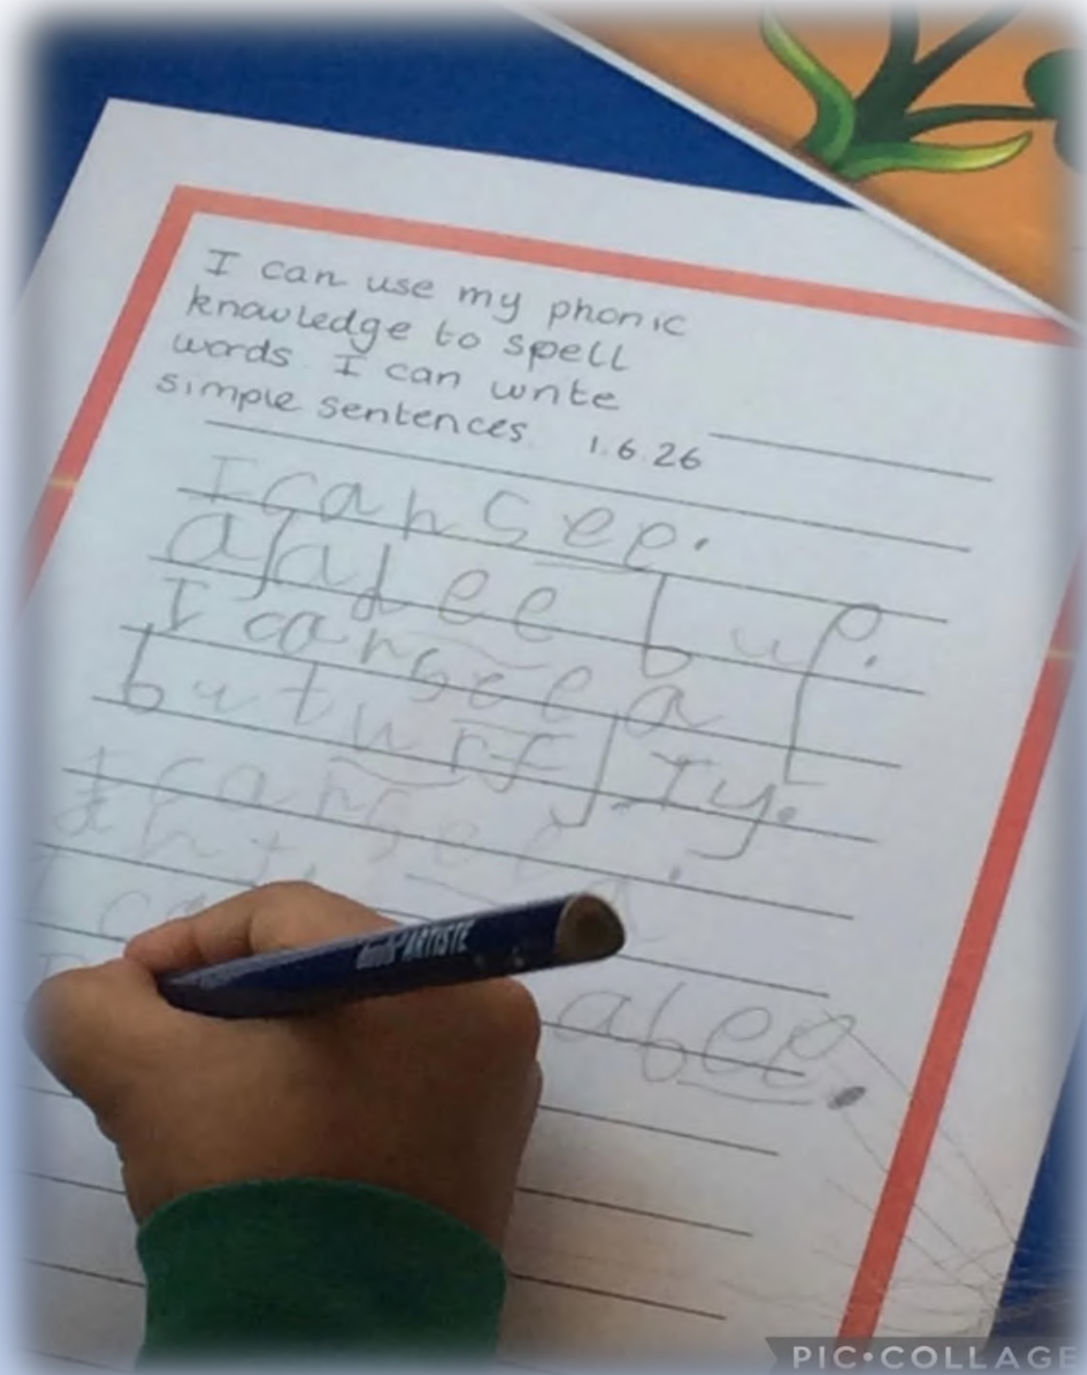 I can use my phonic
knowledge to spell
words. I can write
simple sentences. 1.6.26
I can see.
a ladee bup.
I can see a
buturflTy.
I can see a
I ca
a bee.
ARTISTE
PIC•COLLAGE